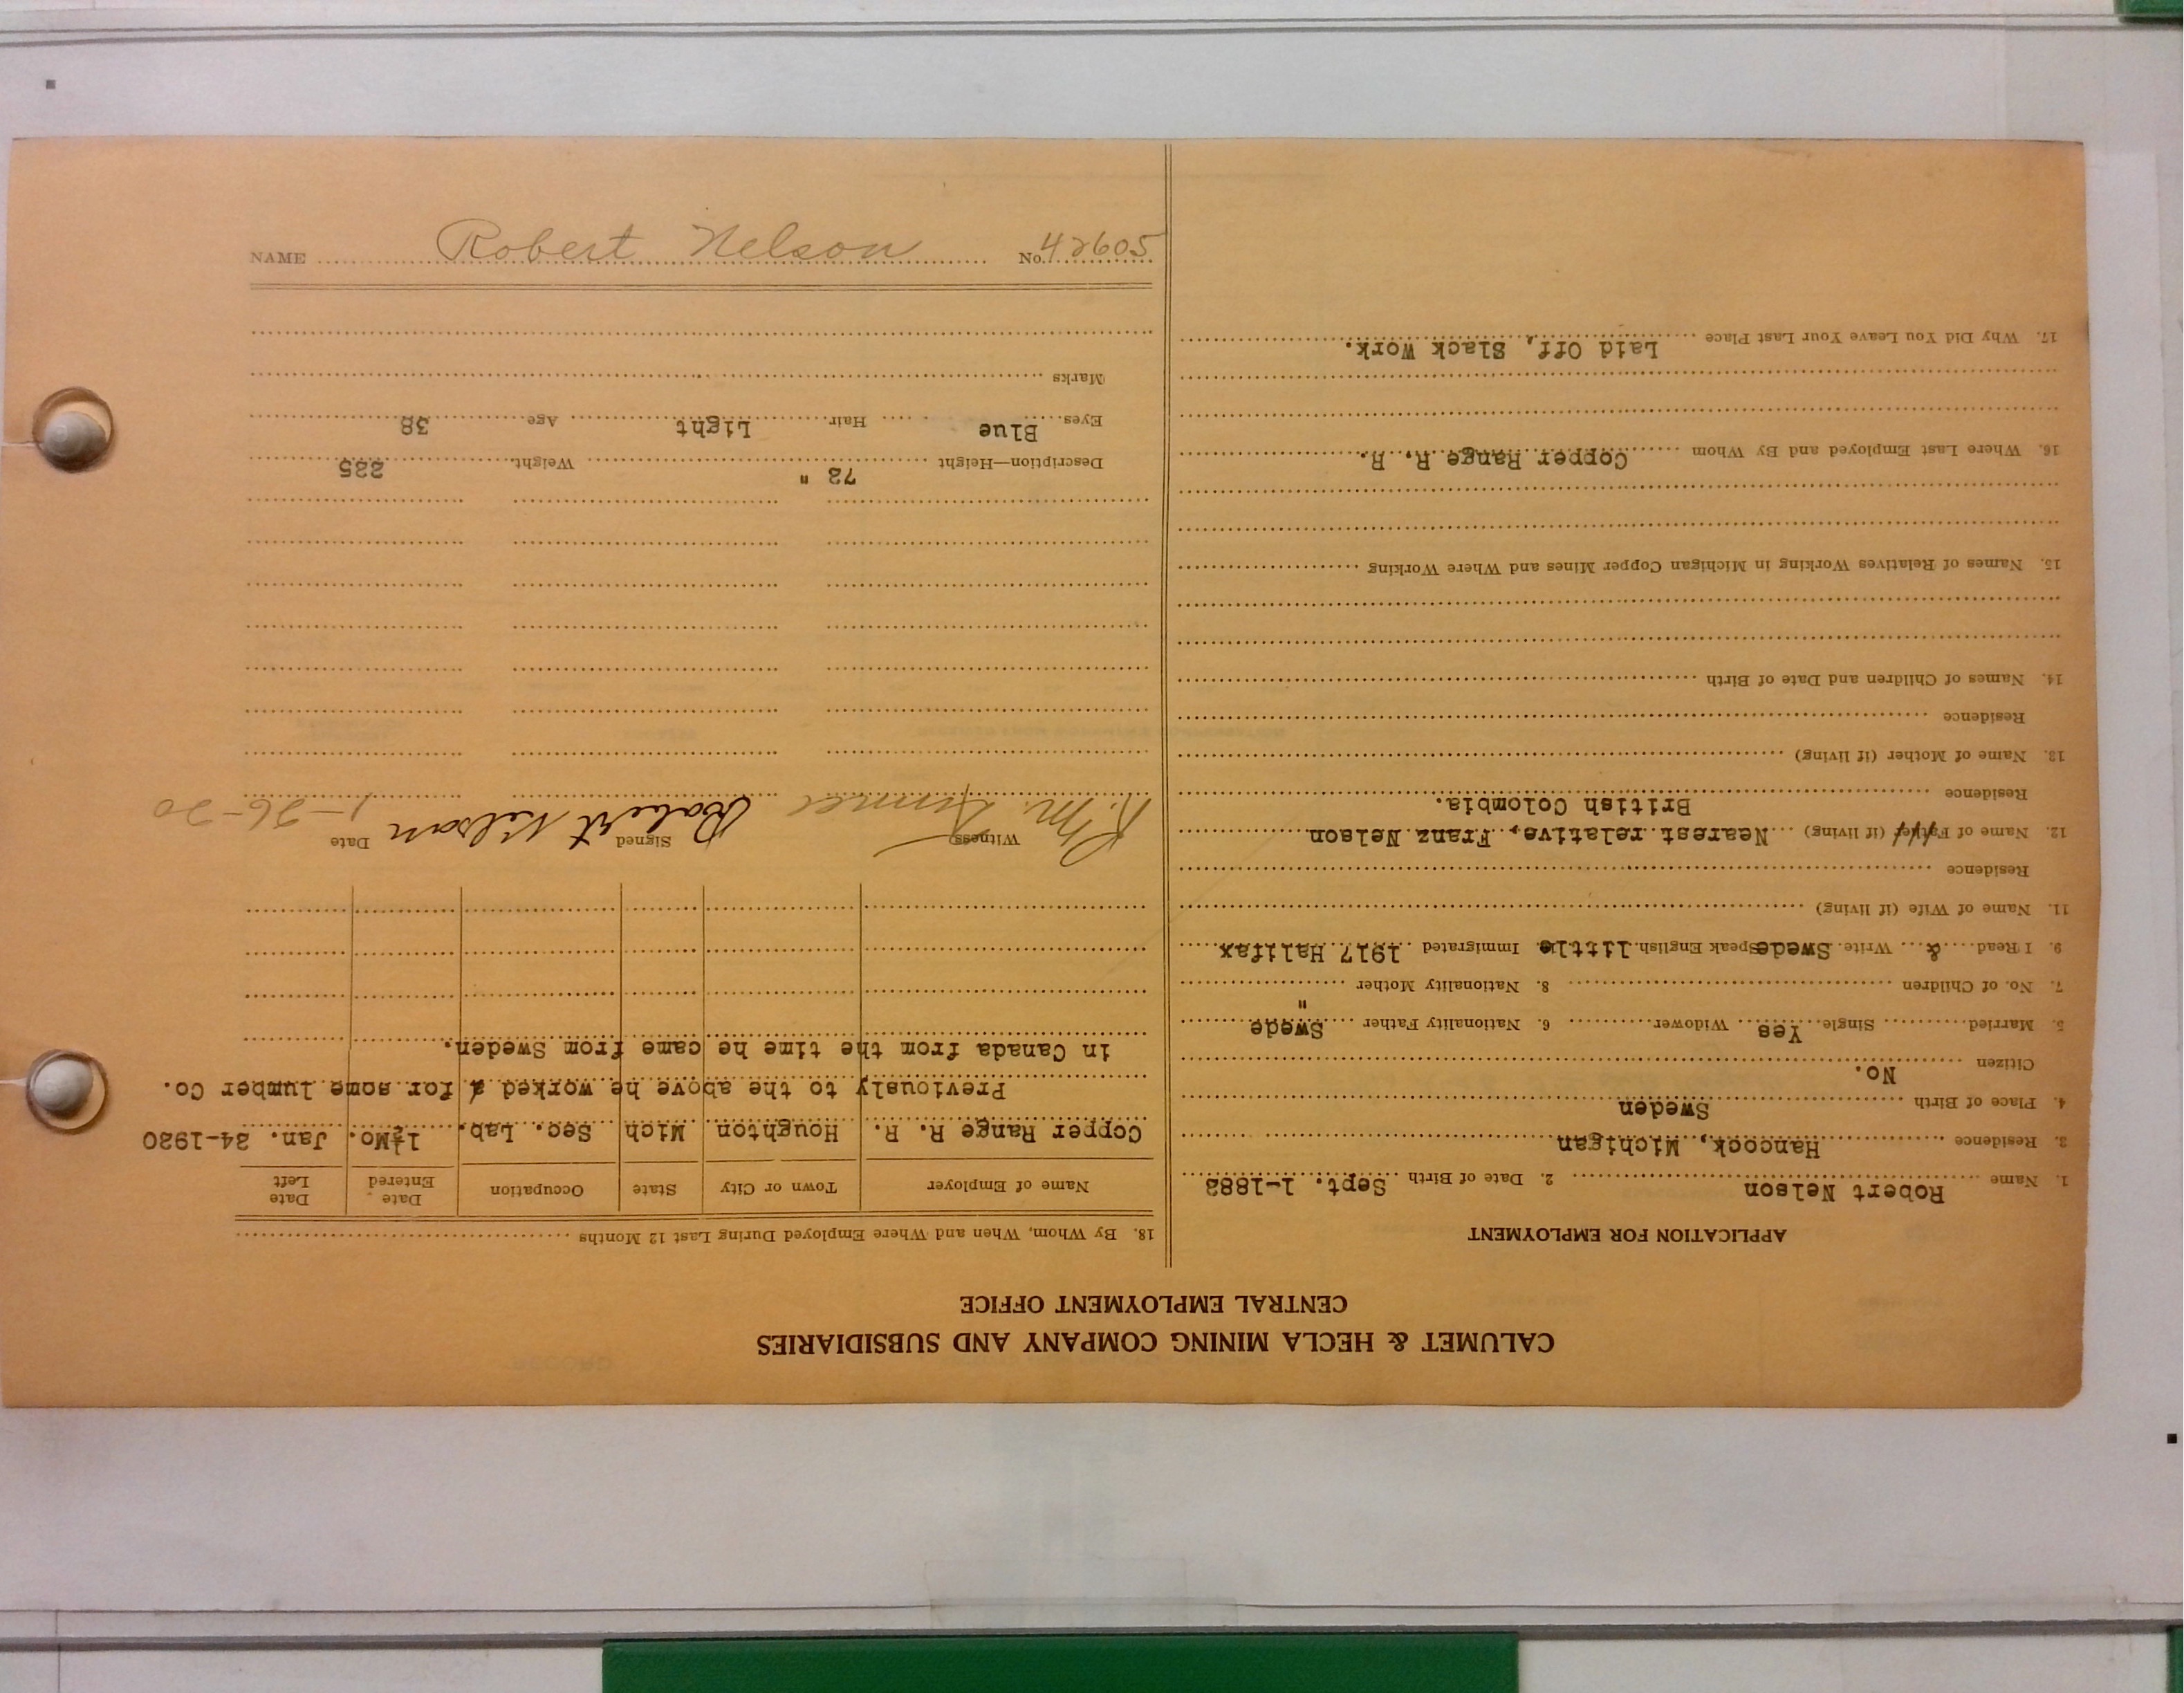 CALUMET & HECLA MINING COMPANY AND SUBSIDIARIES
CENTRAL EMPLOYMENT OFFICE
APPLICATION FOR EMPLOYMENT
1. Name Robert Nelson 2. Date of Birth Sept. 1-1882
3. Residence Hancock, Michigan
4. Place of Birth Sweden
Citizen No.
5. Married Single Yes Widower 6. Nationality Father Swede
7. No. of Children 8. Nationality Mother "
9. I Read & Write Swede Speak English little Immigrated 1917 Halifax
11. Name of Wife (if living)
Residence
12. Name of Father (if living) Nearest relative, Franz Nelson
Residence British Colombia.
13. Name of Mother (if living)
Residence
14. Names of Children and Date of Birth
15. Names of Relatives Working in Michigan Copper Mines and Where Working
16. Where Last Employed and By Whom Copper Range R. R.
17. Why Did You Leave Your Last Place Laid Off, Slack Work.
18. By Whom, When and Where Employed During Last 12 Months
Name of Employer Town or City State Occupation Date Entered Date Left
Copper Range R. R. Houghton Mich Sec. Lab. 1½Mo. Jan. 24-1920
Previously to the above he worked for some lumber Co
in Canada from the time he came from Sweden.
Witness R. M. Signed Robert Nelson Date 1-26-20
Description—Height 72 " Weight 225
Eyes Blue Hair Light Age 38
Marks
NAME Robert Nelson No. 42605